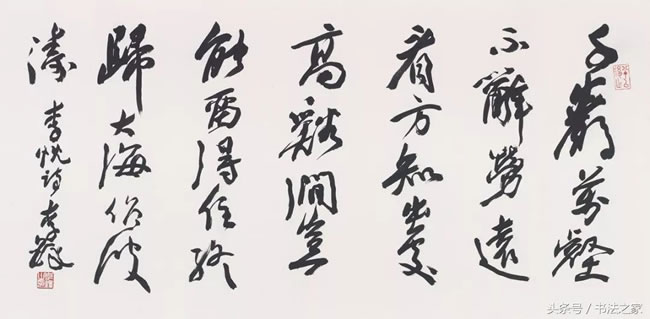 千巖萬壑
不辭勞遠
看方知出處
高谿澗豈
能留得住終
歸大海作波
濤 李忱詩 李鐸
头条号 / 书法之家